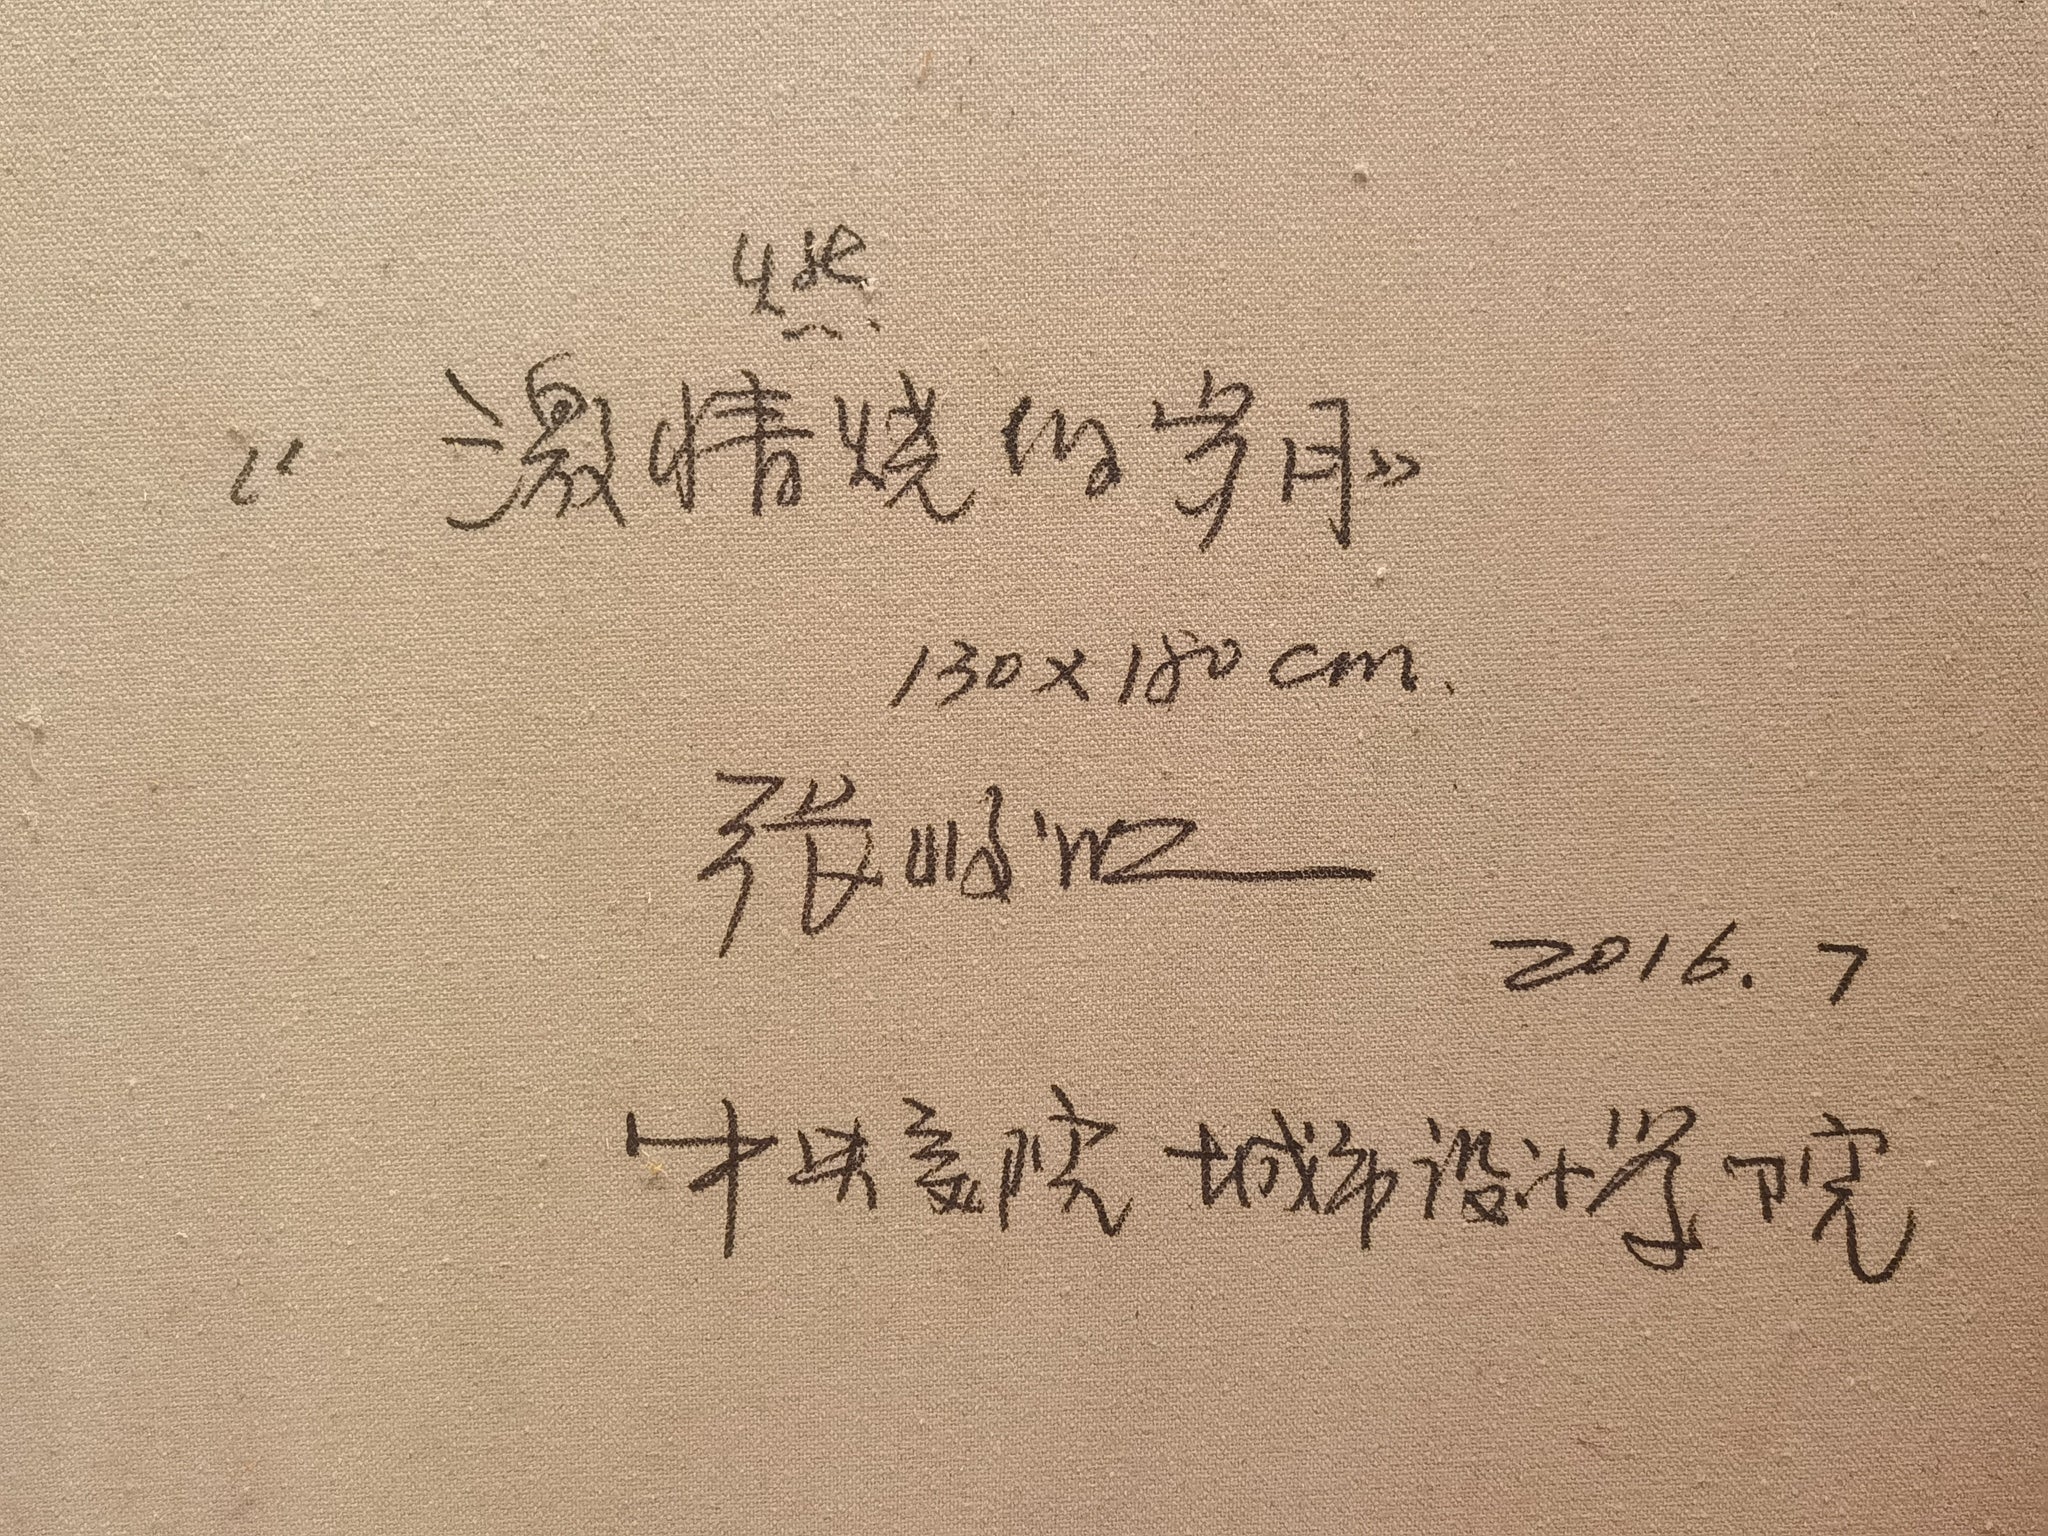 燃
《激情烧的岁月》
130×180cm.
张
2016.7
中央美院 城市设计学院